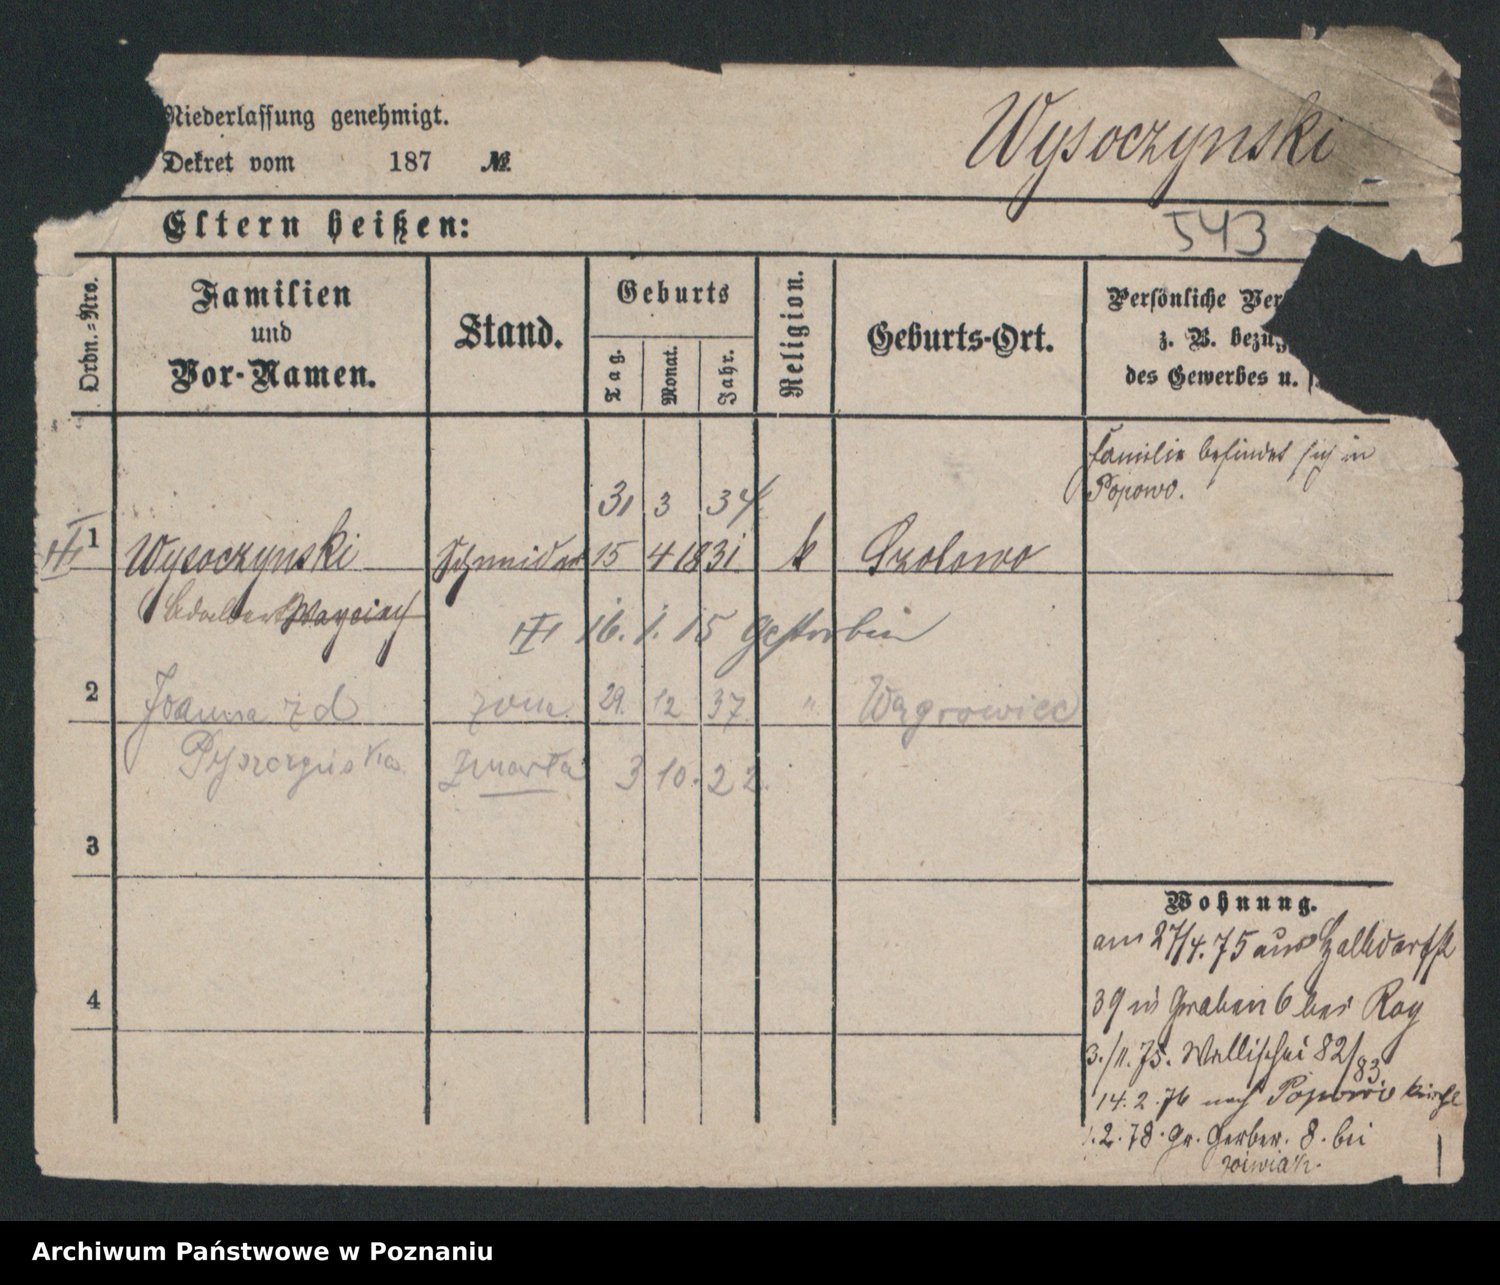 Niederlassung genehmigt.
Wysoczynski
Dekret vom 187 №
Eltern heißen:
543
Ordn.=Nro.
Familien
und
Vor-Namen.
Stand.
Geburts
Tag.
Monat.
Jahr.
Religion.
Geburts-Ort.
Persönliche Ver
z. B. bezüg
des Gewerbes u.
Familie befindet sich in
Popowo.
31 3 34
1 Wysoczynski Schneider 15 4 1831 k
Adalbert Wojciech
16. 1. 15 gestorben
2 Joanna zd żona 29. 12 37 " Wągrowiec
zmarła 3 10. 22.
3
4
Wohnung.
am 27/4. 75 aus Halbdorfst
39 in Graben 6 bei Roy
3./11. 75. Wallischei 82/83
14. 2. 76 nach Popowo kirche
1. 2. 78. Gr. Gerber. 8. bei